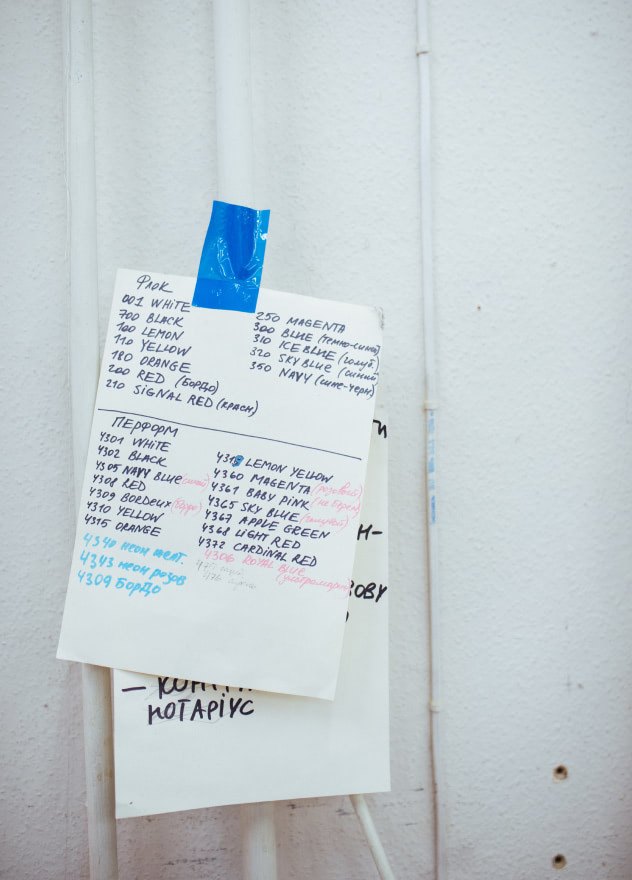 Флок
001 WHITE
700 BLACK
100 LEMON
110 YELLOW
180 ORANGE
200 RED (БОРДО)
210 SIGNAL RED (КРАСН)
250 MAGENTA
300 BLUE (темно-синий)
310 ICE BLUE (голуб.)
320 SKY BLUE (синий)
350 NAVY (сине-черн)
ПЕРФОРМ
4301 WHITE
4302 BLACK
4305 NAVY BLUE (синий)
4308 RED
4309 BORDEUX (бордо)
4310 YELLOW
4315 ORANGE
4340 неон желт.
4343 неон розов
4309 БОРДО
LEMON YELLOW
4360 MAGENTA (розовый)
4361 BABY PINK
4365 SKY BLUE (голубой)
4367 APPLE GREEN
4368 LIGHT RED
4372 CARDINAL RED
4306 ROYAL BLUE
(ультрамарин)
475
476
ти
Н-
ЗОВУ
–
НОТАРІУС